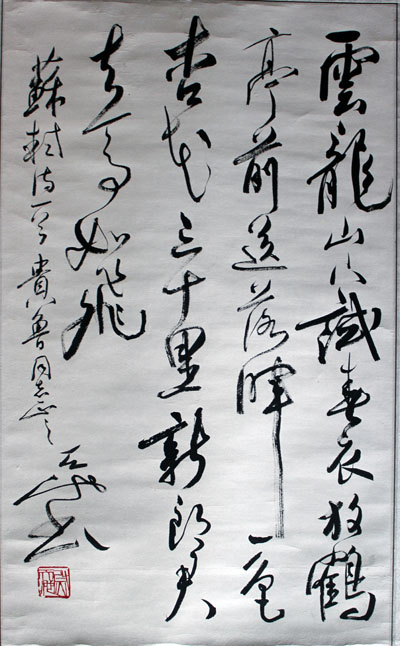 雲龍山下試春衣放鶴
亭前送落暉一色
杏花三十里新郎君
去馬如飛
蘇軾诗一首貴魯同志正之